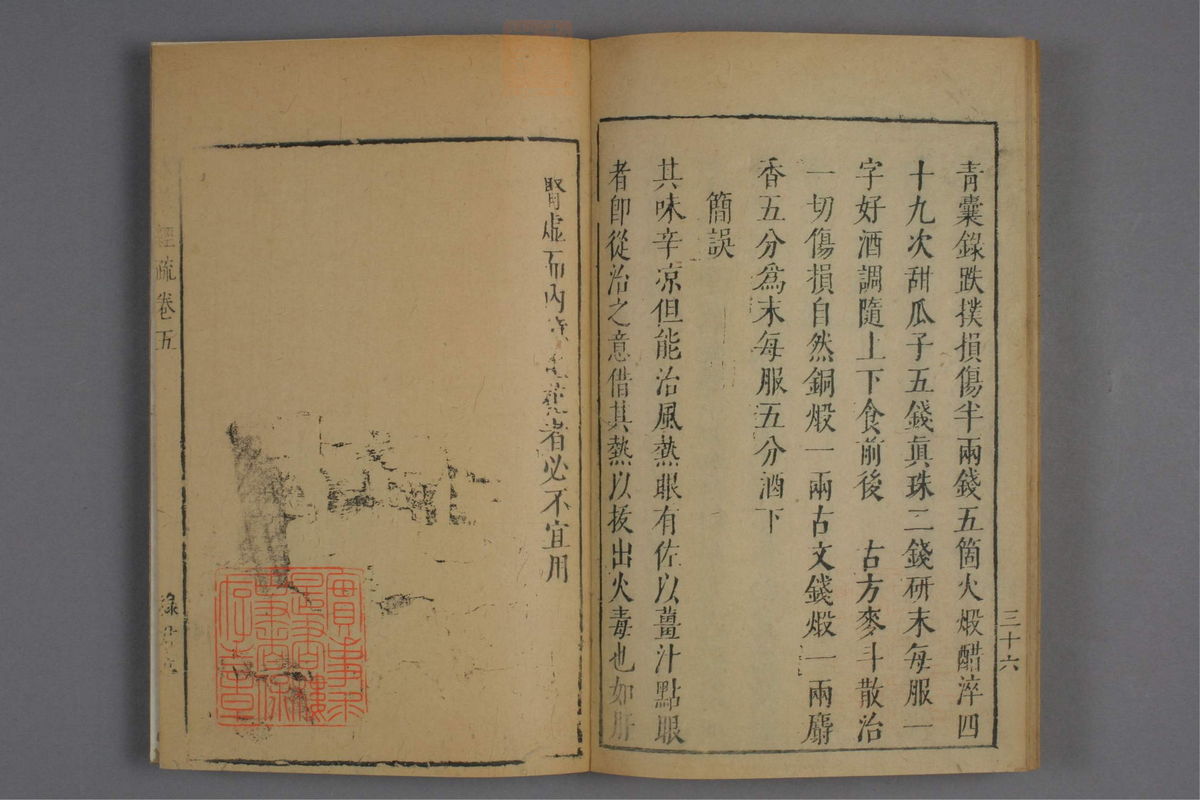 青囊錄跌撲損傷半兩錢五箇火煅醋淬四
十九次甜瓜子五錢眞珠二錢研末每服一
字好酒調隨上下食前後　古方麥斗散治
一切傷損自然銅煅一兩古文錢煅一兩麝
香五分爲末每服五分酒下
簡誤
其味辛凉但能治風熱眼有佐以薑汁點眼
者卽從治之意借其熱以拔出火毒也如肝
三十六
腎虛而內
者必不宜用
經疏卷五